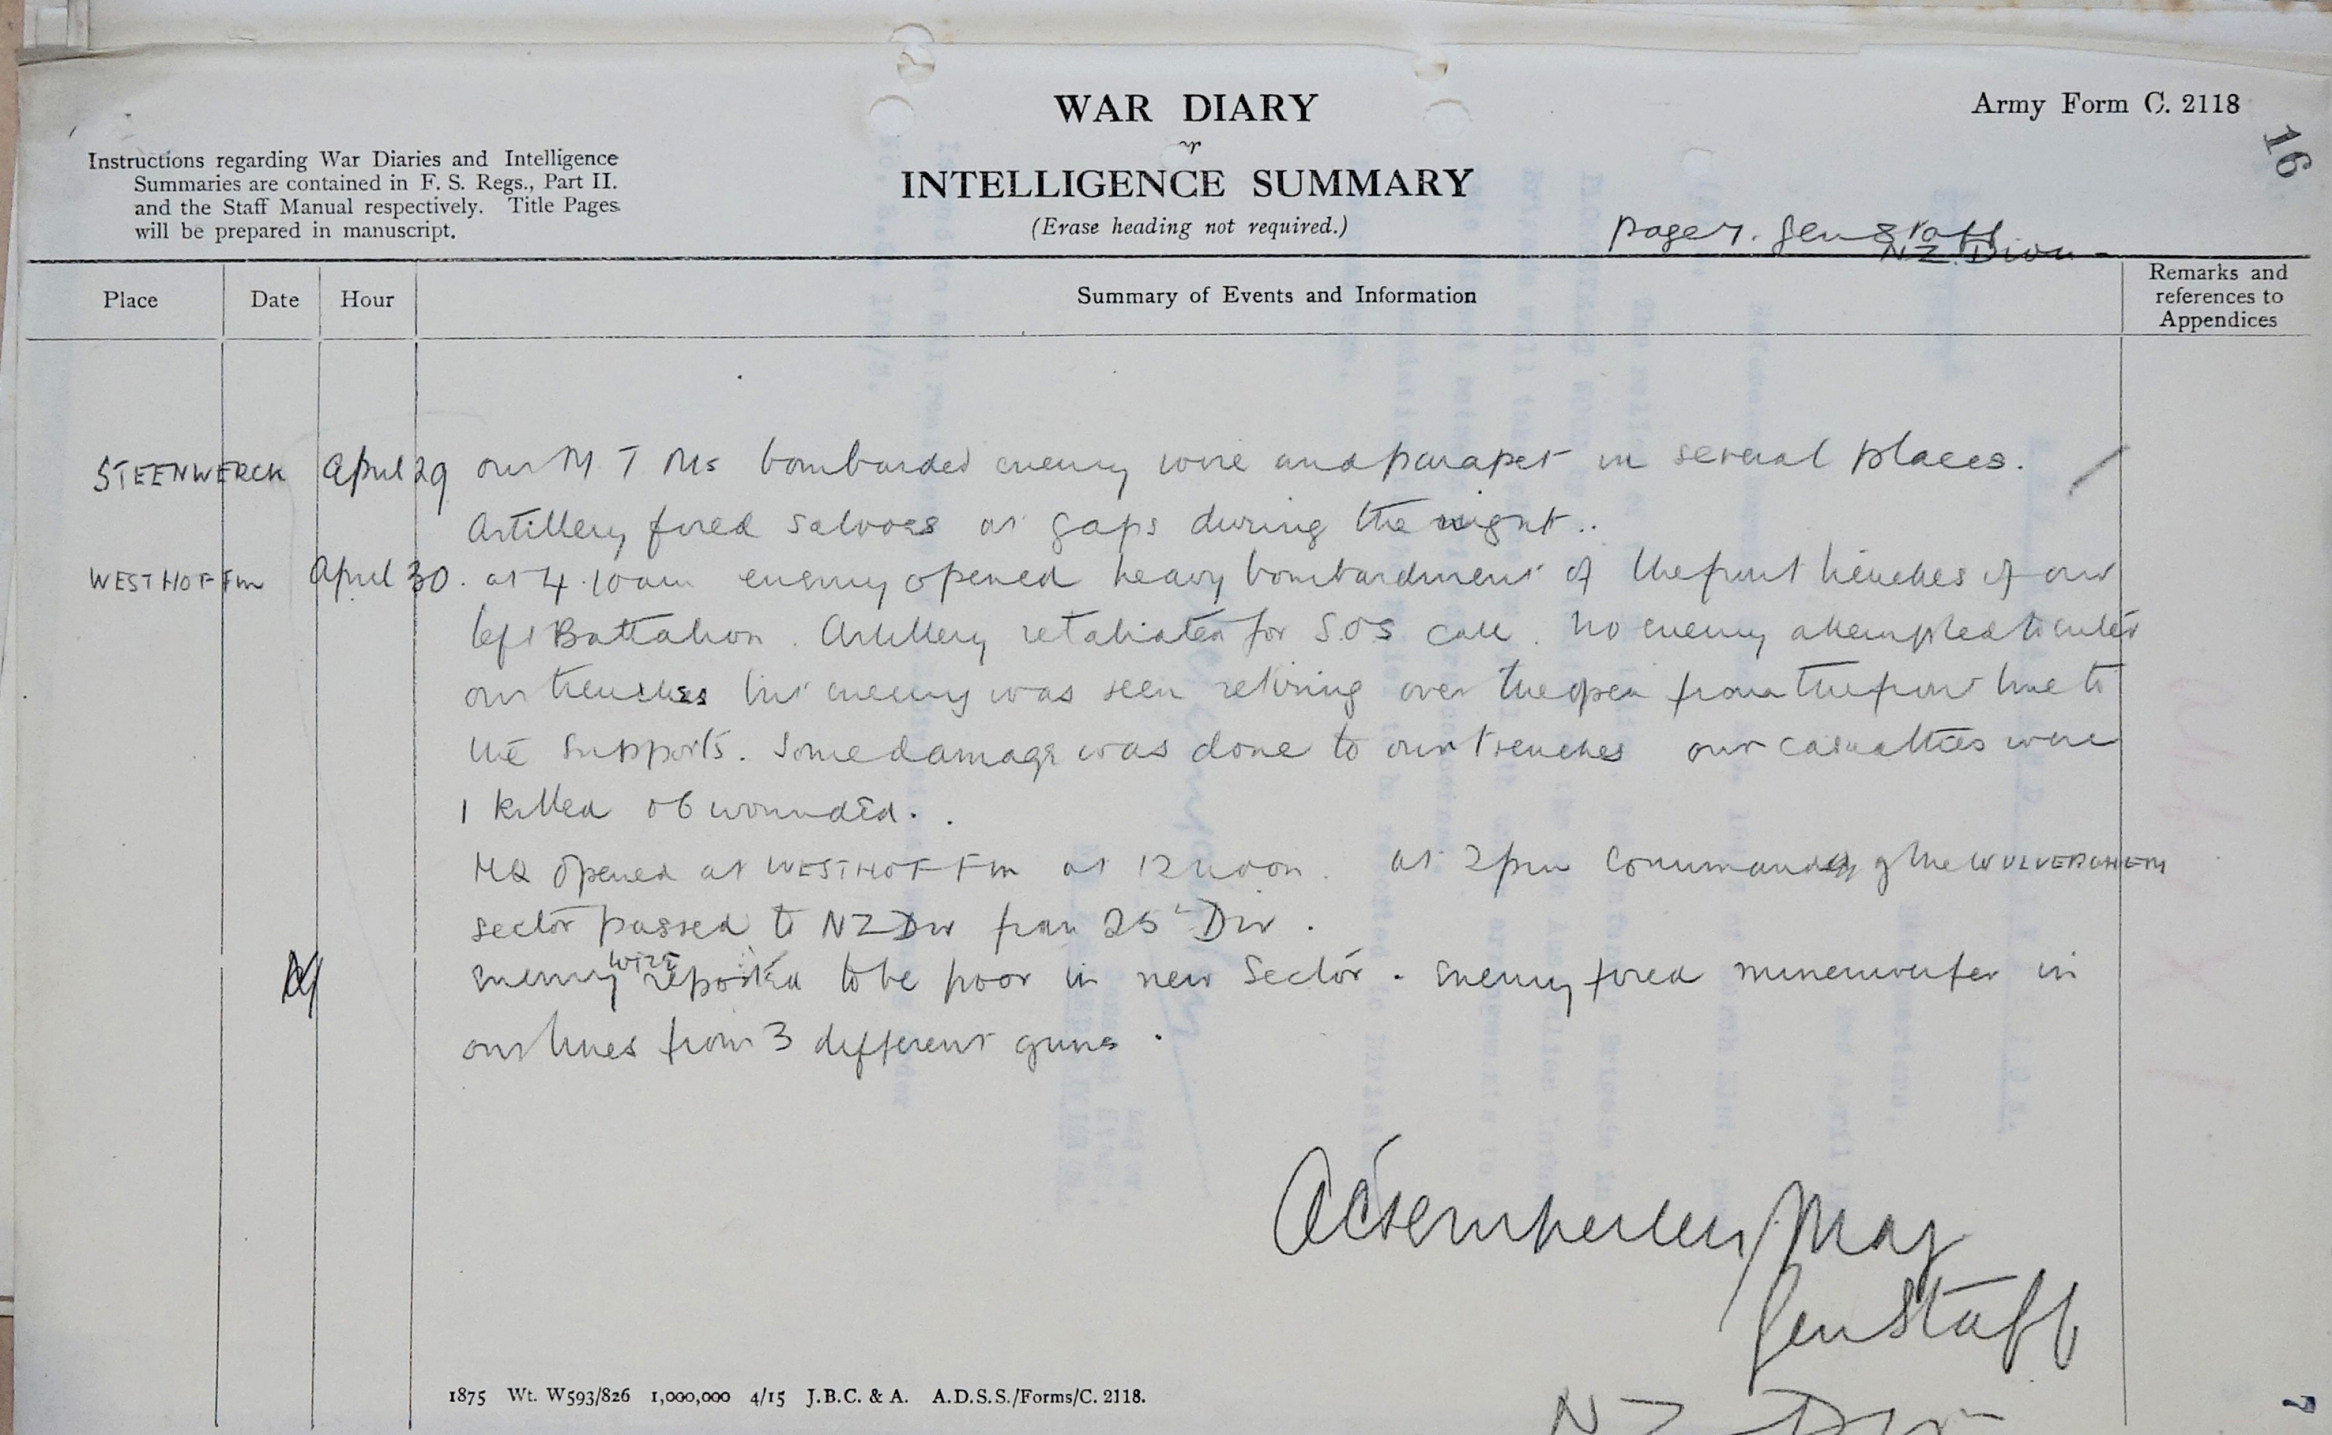 WAR DIARY
or
INTELLIGENCE SUMMARY
(Erase heading not required.)
Army Form C. 2118
16
Instructions regarding War Diaries and Intelligence
Summaries are contained in F. S. Regs., Part II.
and the Staff Manual respectively. Title Pages
will be prepared in manuscript.
page 7. Gen Staff
NZ Divn -
Place
Date
Hour
Summary of Events and Information
Remarks and
references to
Appendices
STEENWERCK April 29 our M T Ms bombarded enemy wire and parapet in several places.
Artillery fired salvoes at gaps during the night..
WESTHOF Fm April 30. at 4.10 am enemy opened heavy bombardment of the front trenches of our
left Battalion. Artillery retaliated for S.O.S call. No enemy attempted to enter
our trenches but enemy was seen retiring over the open from the front line to
the supports. Some damage was done to our trenches our casualties were
1 killed 06 wounded.
HQ opened at WESTHOF Fm at 12 noon. at 2pm Command of the WULVERGHEM
sector passed to NZ Div from 25 Div.
enemy wire reported to be poor in new sector. Enemy fired minenwerfer in
our lines from 3 different guns.
ACTemperley Maj
Gen Staff
NZ Divn
1875 Wt. W593/826 1,000,000 4/15 J.B.C. & A. A.D.S.S./Forms/C. 2118.
7